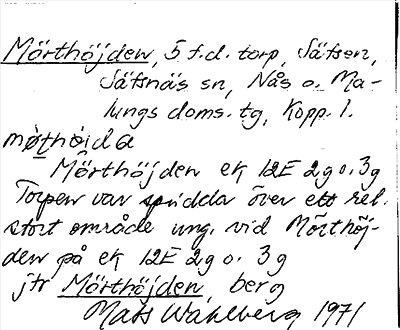 Mörthöjden, 5 f.d. torp, Säfsen,
Säfsnäs sn, Nås o. Ma-
lungs doms. tg, Kopp. l.
mø̀thòi̯da
Mörthöjden ek 12E 2g o. 3g
Torpen var spridda över ett rel.
stort område ung. vid Mörthöj-
den på ek 12E 2g o. 3g
jfr Mörthöjden, berg
Mats Wahlberg 1971